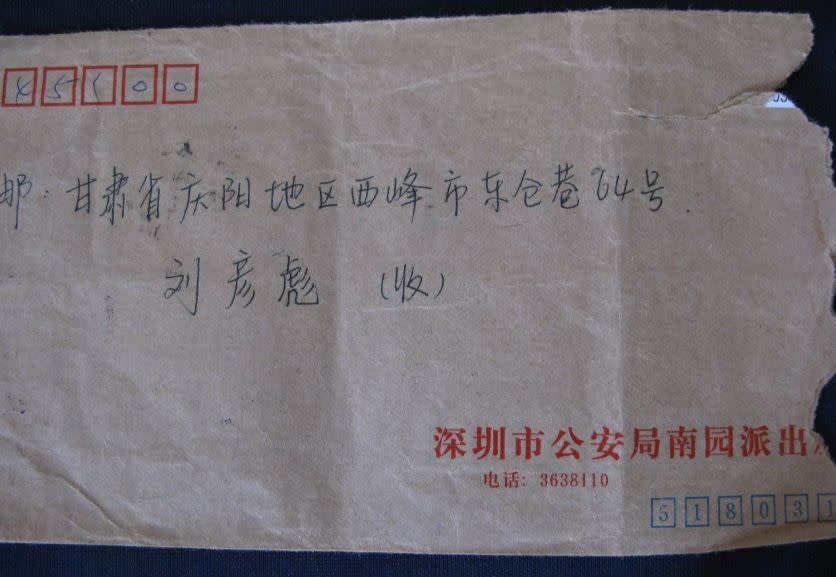 45100
邮: 甘肃省庆阳地区西峰市东仓巷64号.
刘彦彪 (收)
深圳市公安局南园派出
电话: 3638110
518031